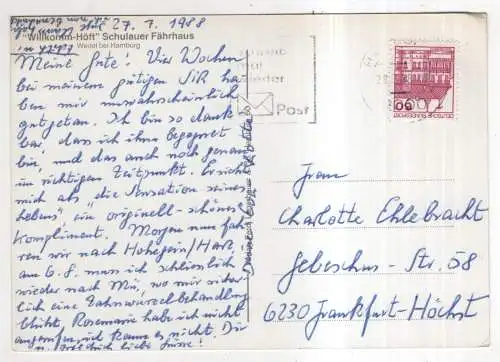 27. 7. 1988
"Willkomm-Höft" Schulauer Fährhaus
Wedel bei Hamburg
Meine Gute! Vier Wochen
bei meinem gütigen SIR ha-
ben mir unwahrscheinlich
gutgetan. Ich bin so dank-
bar, dass ich ihm begegnet
bin, und das auch noch genau
im richtigen Zeitpunkt. Er sieht
mich als "die Sensation seines
Lebens", ein originell-schönes
Kompliment. Morgen nun fah-
ren wir nach Hohegeiß/Harz,
am 6.8. muss ich schließlich
wieder nach Mü, wo mir näher-
lich eine Zahnwurzelbehandlung
blüht. Rosemarie habe ich nicht
angerufen, ich kann es nicht. Dir
herzlich liebe Grüsse!
Schreib
mal
wieder
Post
60
DEUTSCHE BUNDESPOST
Frau
Charlotte Ehlebracht
Gebeschus-Str. 58
6230 Frankfurt-Höchst